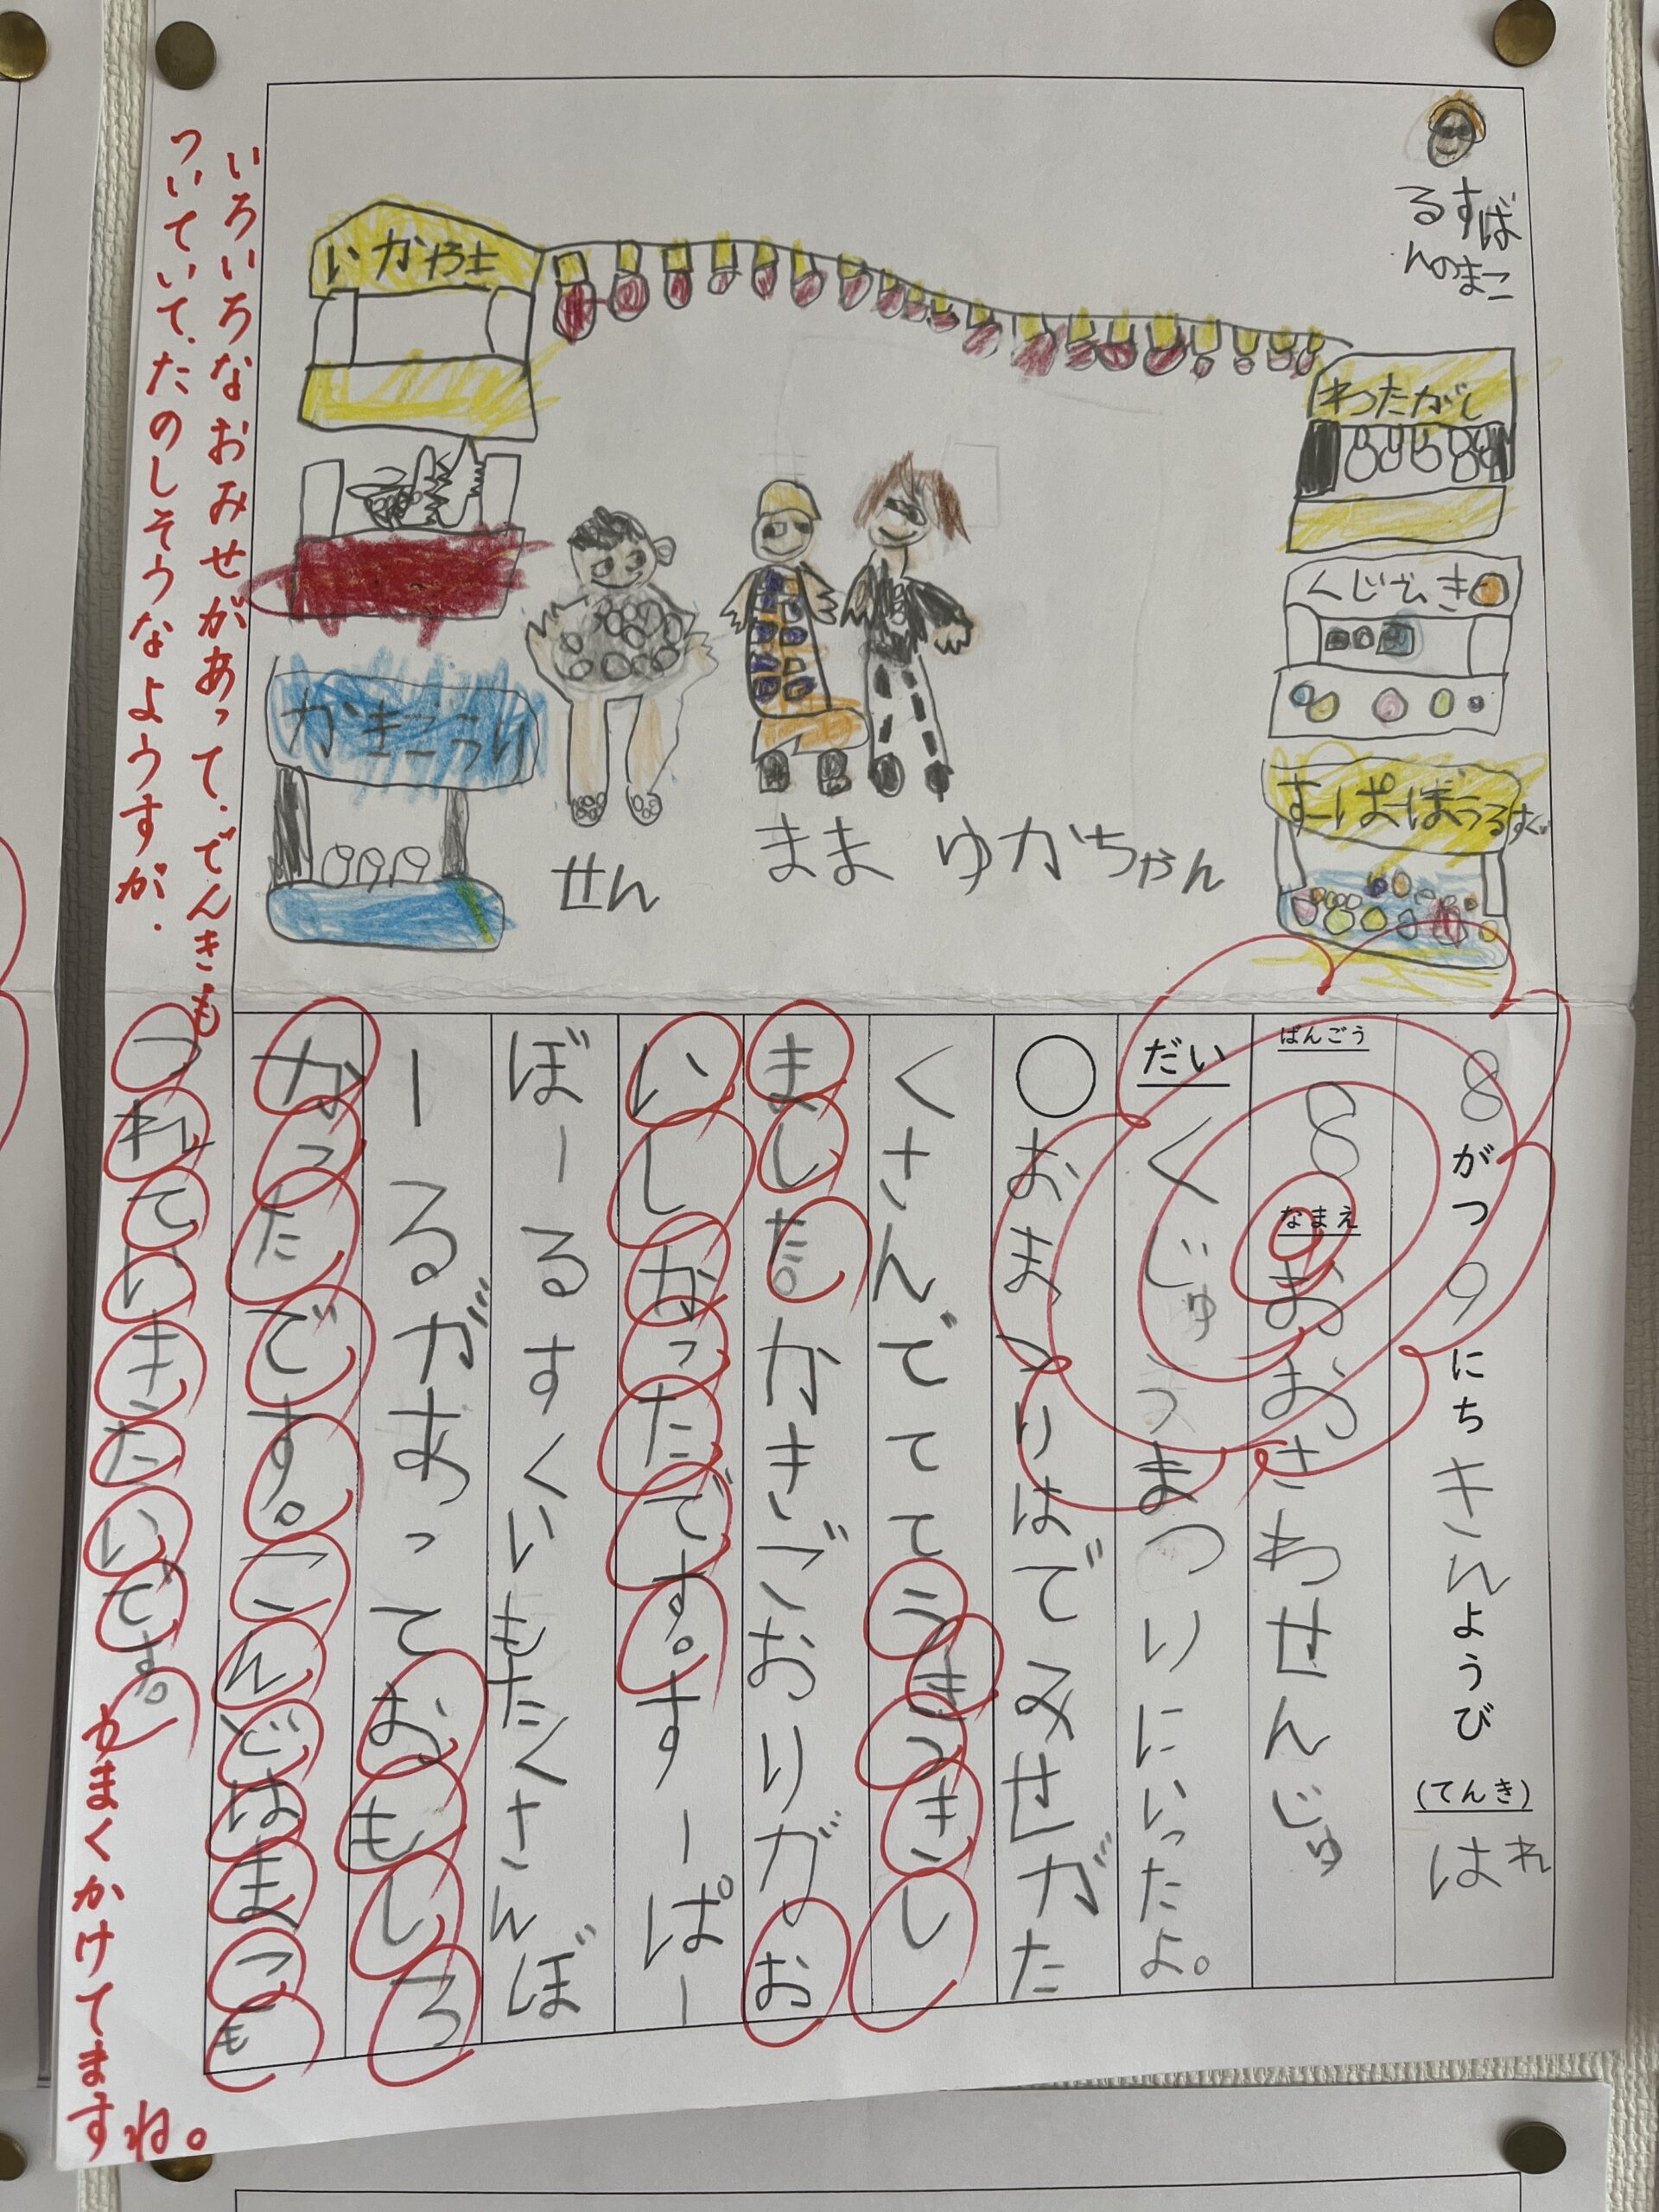 るすばん
のまこ
いかやき
わたがし
くじびき
かきごうり
すーぱーぼうるすくい
せん
まま
ゆかちゃん
8がつ9にちきんようび(てんき)はれ
ばんごう8なまえおおさわせんじゅ
だいくじゅうまつりにいったよ。
○おまつりはでみせがた
くさんでててうきうきし
ました。かきごおりがお
いしかったです。すーぱー
ぼーるすくいもたくさんぼ
ーるがあっておもしろ
かったです。こんどはまつも
つれていきたいです。
いろいろなおみせがあって、でんきも
ついていて、たのしそうなようすが、
うまくかけてますね。